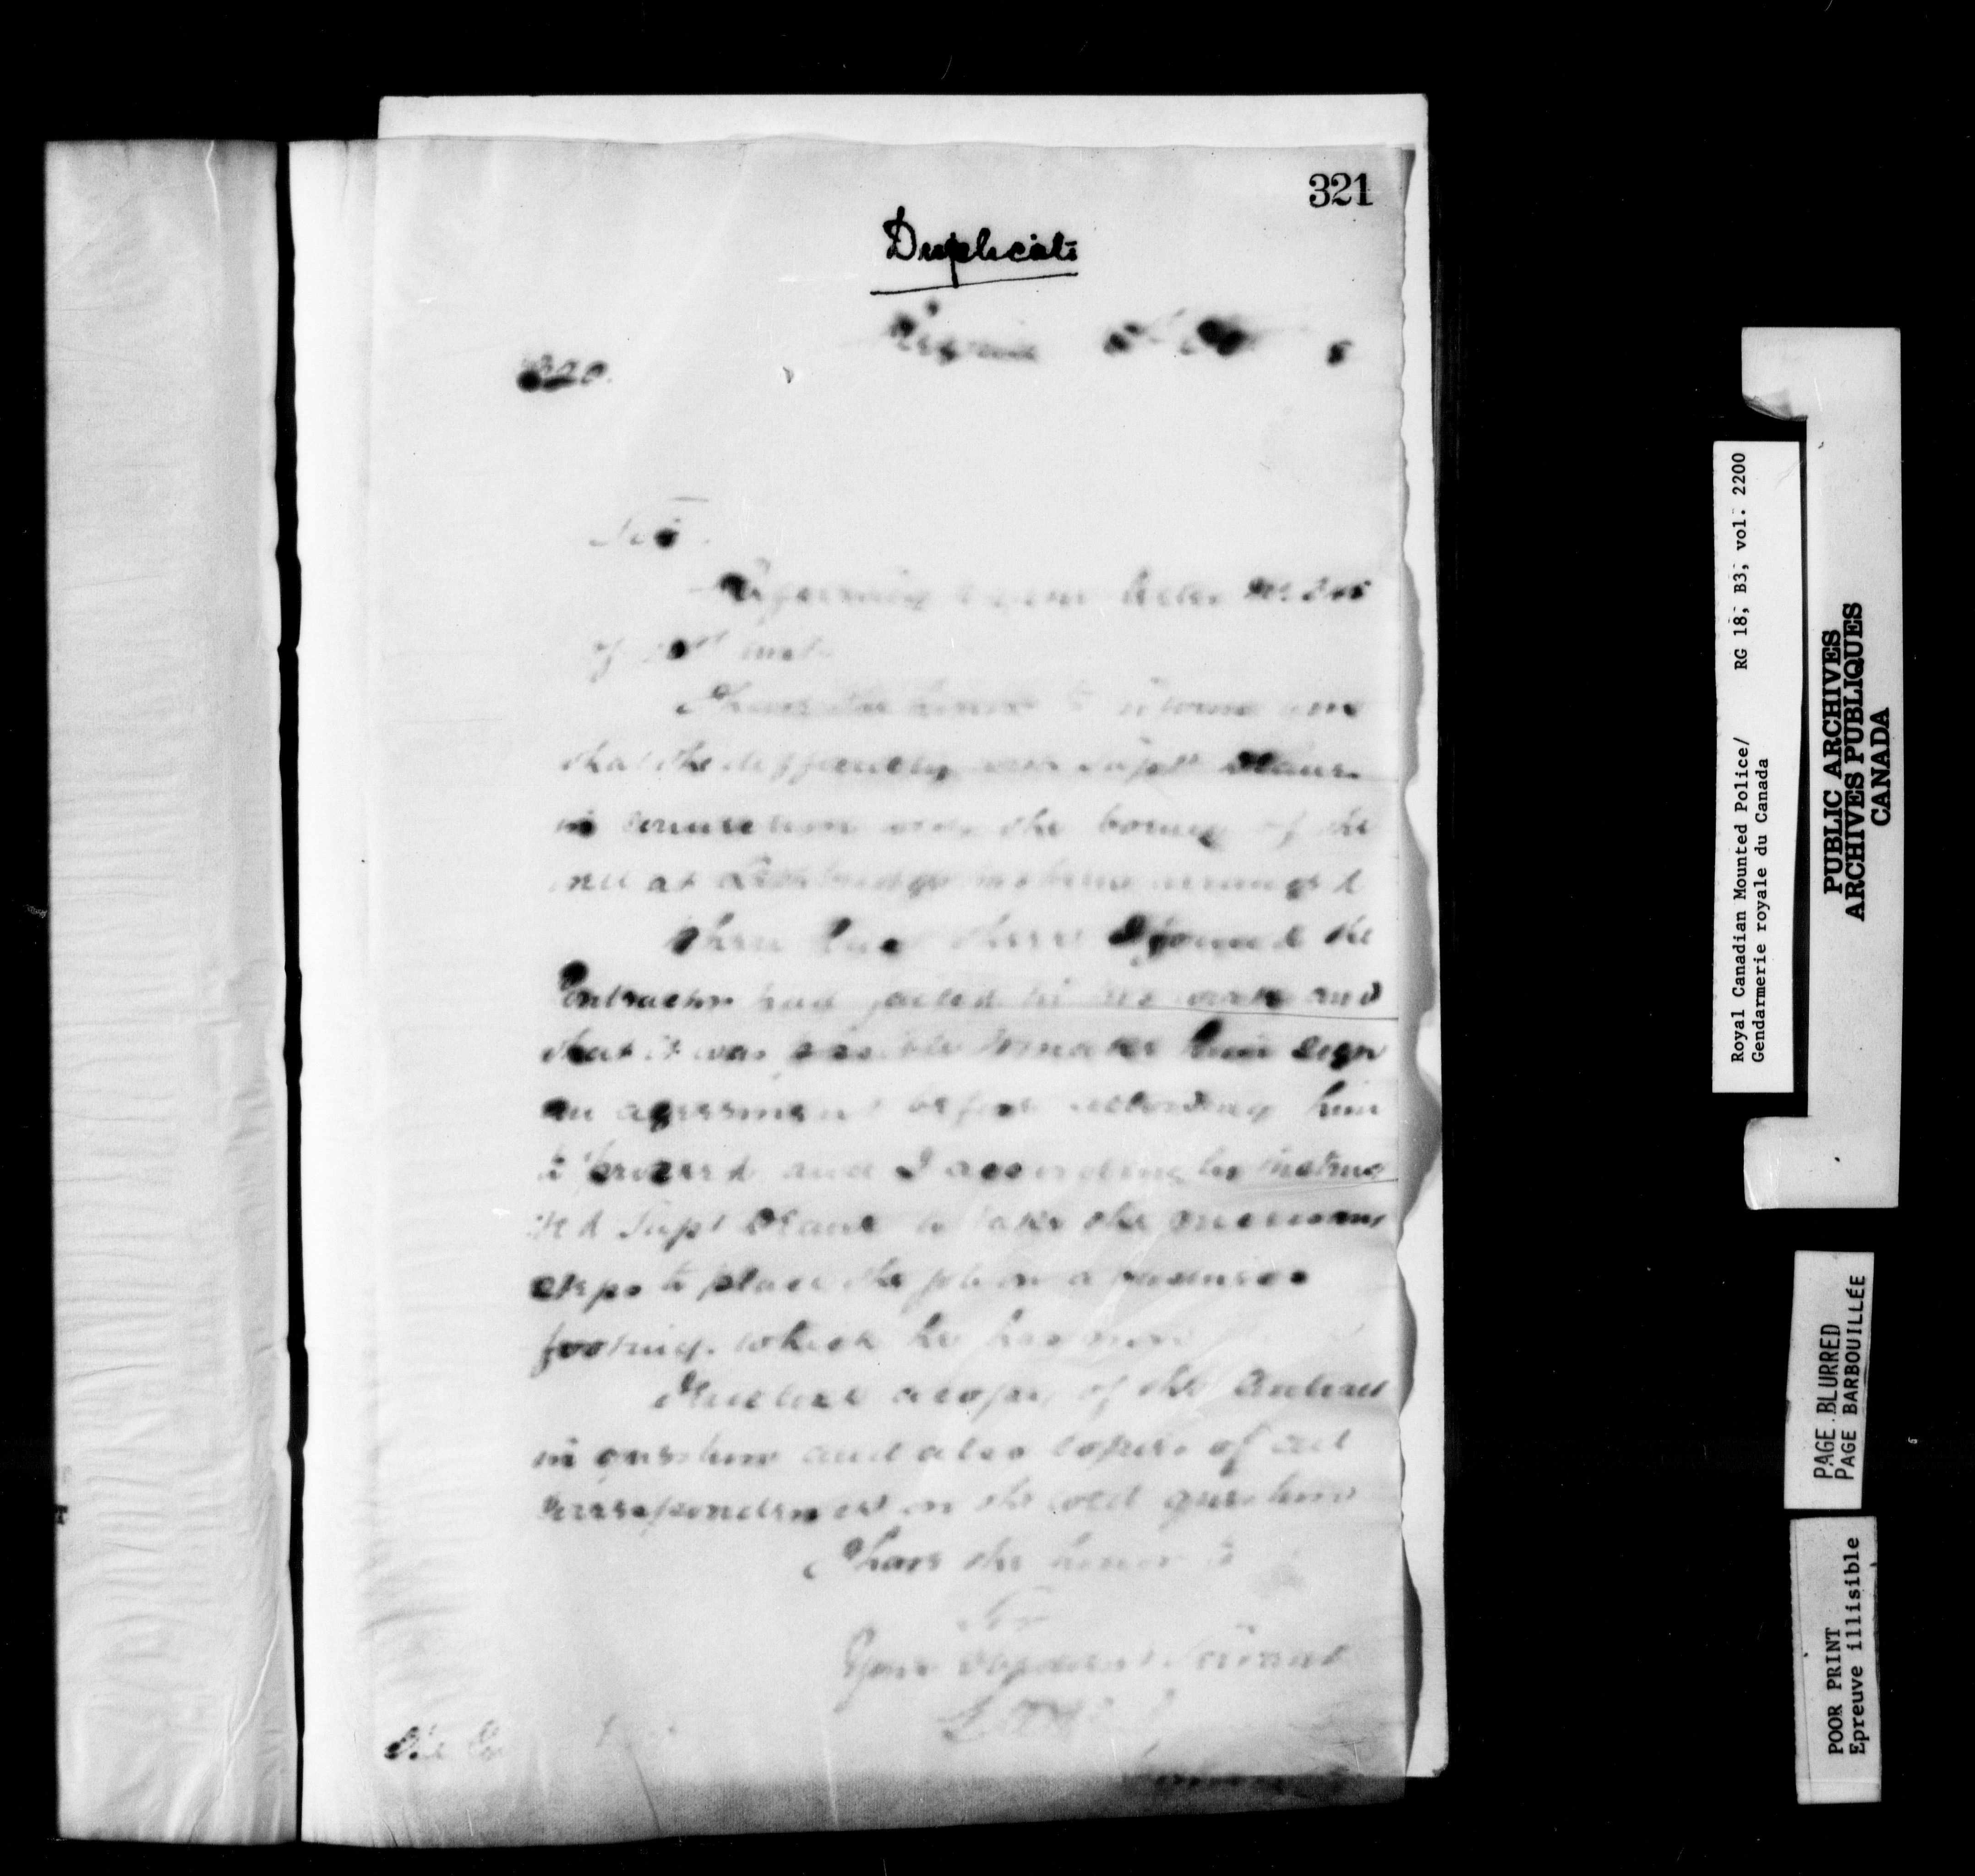 321
Duplicate
Regina
Sir
Referring to your letter No
of inst
I have the honor to inform you
that the difficulty with Supt Deane
in connection with the boring of the
well at Lethbridge has been arranged
When last there I found the
Contractor had failed in his work and
that it was possible to make him sign
an agreement before allowing him
to proceed and I accordingly instruc
ted Supt Deane to take the necessary
steps to place the job on a business
footing. which he has now
I enclose a copy of the Contract
in question and also copies of all
correspondence on the well question
I have the honor to
Sir
Your obedient Servant
Royal Canadian Mounted Police/ RG 18, B3, vol. 2200
Gendarmerie royale du Canada
PUBLIC ARCHIVES
ARCHIVES PUBLIQUES
CANADA
PAGE BLURRED
PAGE BARBOUILLÉE
POOR PRINT
Epreuve illisible